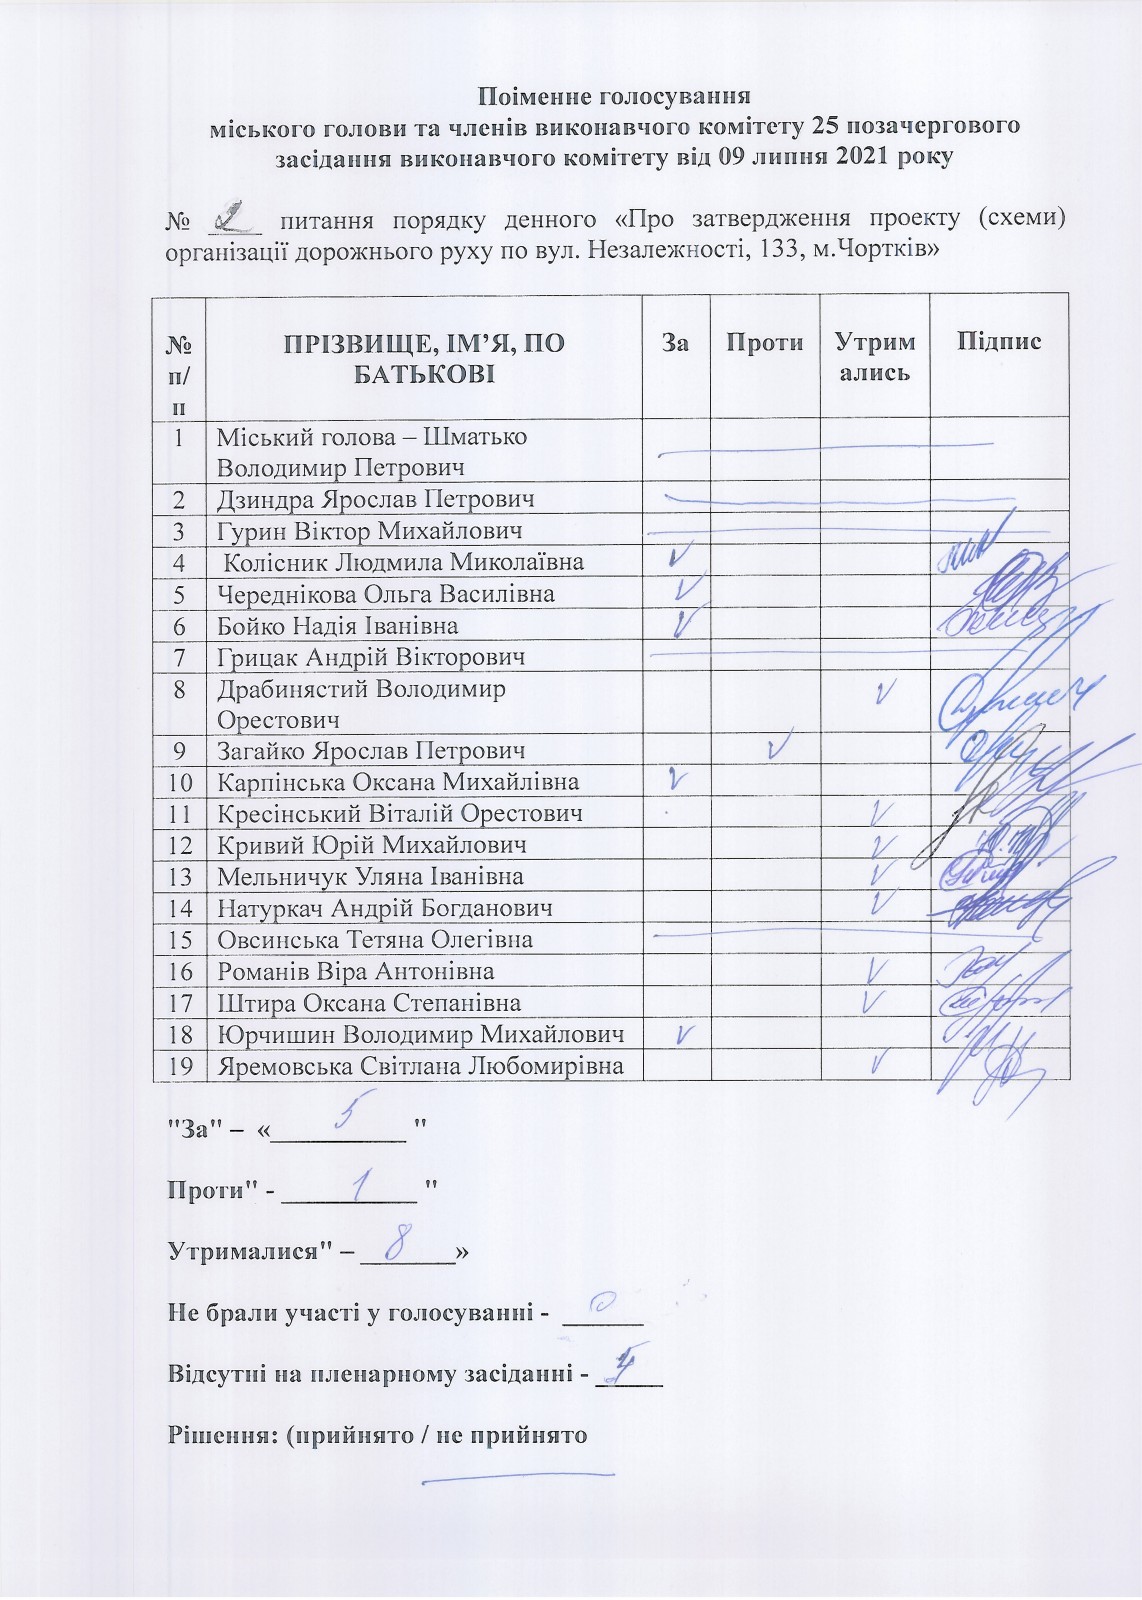 Поіменне голосування
міського голови та членів виконавчого комітету 25 позачергового
засідання виконавчого комітету від 09 липня 2021 року
№ 2 питання порядку денного «Про затвердження проекту (схеми)
організації дорожнього руху по вул. Незалежності, 133, м.Чортків»
№ п/п ПРІЗВИЩЕ, ІМ’Я, ПО БАТЬКОВІ За Проти Утрим ались Підпис
1 Міський голова – Шматько
Володимир Петрович
2 Дзиндра Ярослав Петрович
3 Гурин Віктор Михайлович
4 Колісник Людмила Миколаївна V
5 Череднікова Ольга Василівна V
6 Бойко Надія Іванівна V
7 Грицак Андрій Вікторович
8 Драбинястий Володимир V
Орестович
9 Загайко Ярослав Петрович V
10 Карпінська Оксана Михайлівна V
11 Кресінський Віталій Орестович V
12 Кривий Юрій Михайлович V
13 Мельничук Уляна Іванівна V
14 Натуркач Андрій Богданович V
15 Овсинська Тетяна Олегівна
16 Романів Віра Антонівна V
17 Штира Оксана Степанівна V
18 Юрчишин Володимир Михайлович V
19 Яремовська Світлана Любомирівна V
"За" – «5"
Проти" - 1 "
Утрималися" – 8»
Не брали участі у голосуванні - 0
Відсутні на пленарному засіданні - 5
Рішення: (прийнято / не прийнято